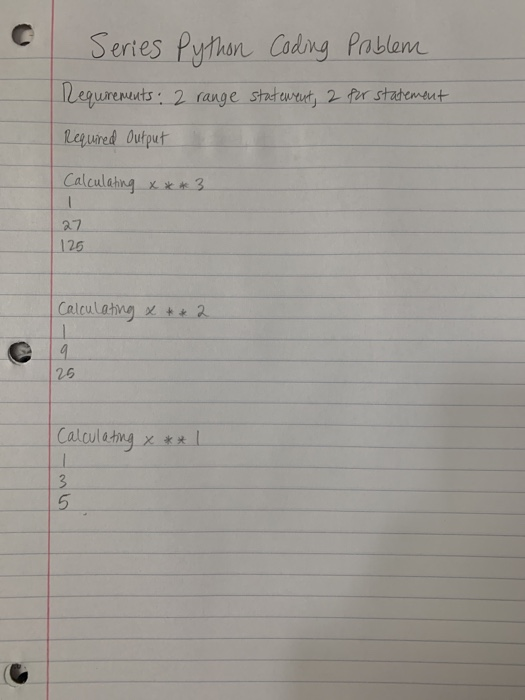 Series Python Coding Problem
Requirements: 2 range statement, 2 for statement
Required Output
Calculating x ** 3
1
27
125
Calculating x ** 2
1
9
25
Calculating x ** 1
1
3
5